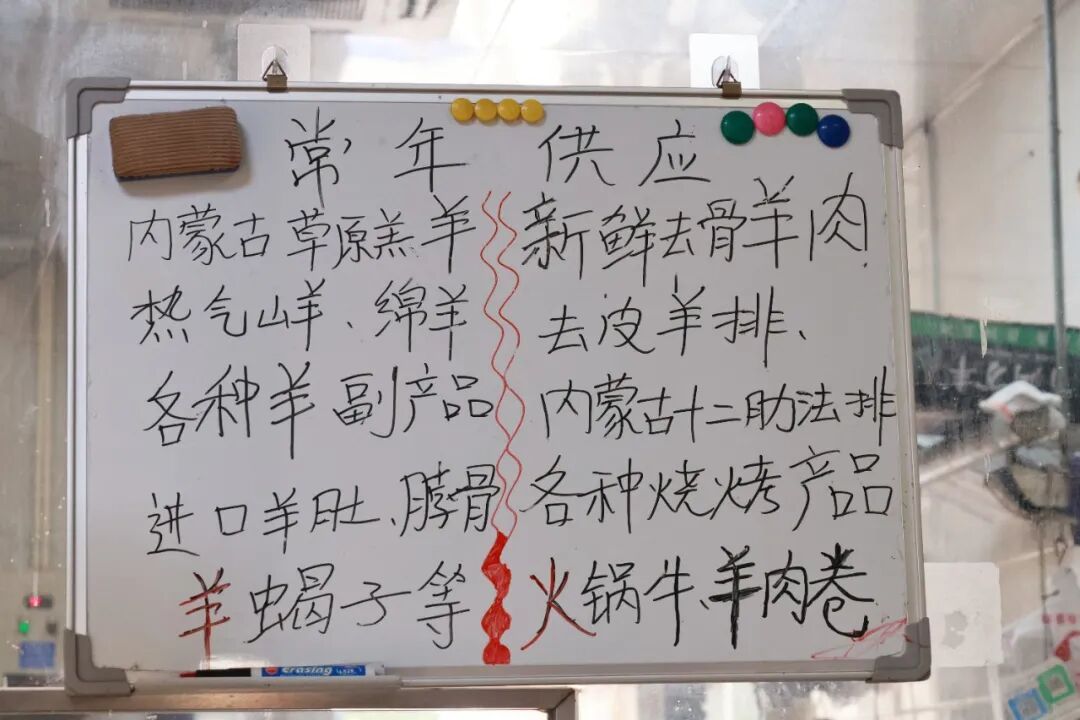 常年供应
内蒙古草原羔羊
热气山羊、绵羊
各种羊副产品
进口羊肚、脖骨
羊蝎子等
新鲜去骨羊肉
去皮羊排、
内蒙古十二肋法排
各种烧烤产品
火锅牛、羊肉卷
erasing